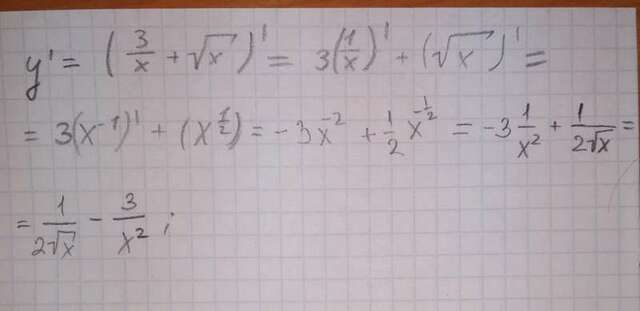 y' = (3/x + √x)' = 3(1/x)' + (√x)' =
= 3(x⁻¹)' + (x^½) = -3x⁻² + ½x^-½ = -3 1/x² + 1/2√x =
= 1/2√x - 3/x² ;